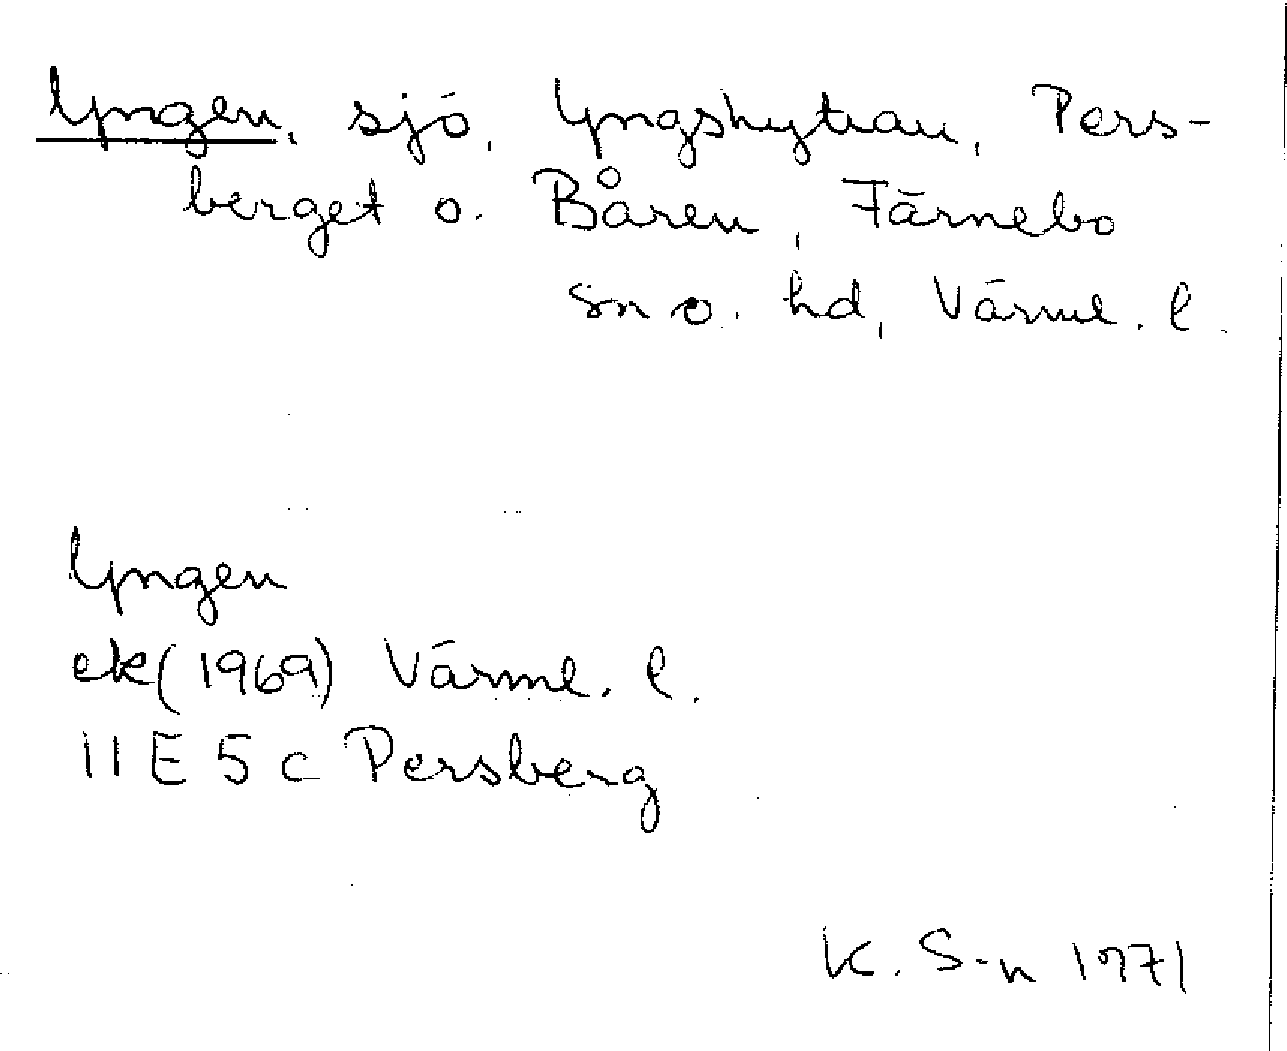 Yngen, sjö, Yngshyttan, Pers-
berget o. Båren, Färnebo
sn o. hd, Värml. l.
Yngen
ek(1969) Värml. l.
11 E 5 c Persberg
K. S-n 1971